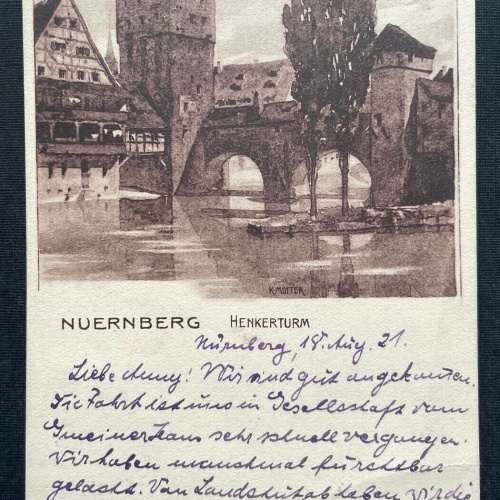 K. MUTTER
NUERNBERG HENKERTURM
Nürnberg, 18. Aug. 21.
Liebe Anny! Wir sind gut angekommen.
Die Fahrt ist uns in Gesellschaft vom
sehr schnell vergangen.
Wir haben manchmal furchtbar
gelacht. Von Landshut ab haben wir die